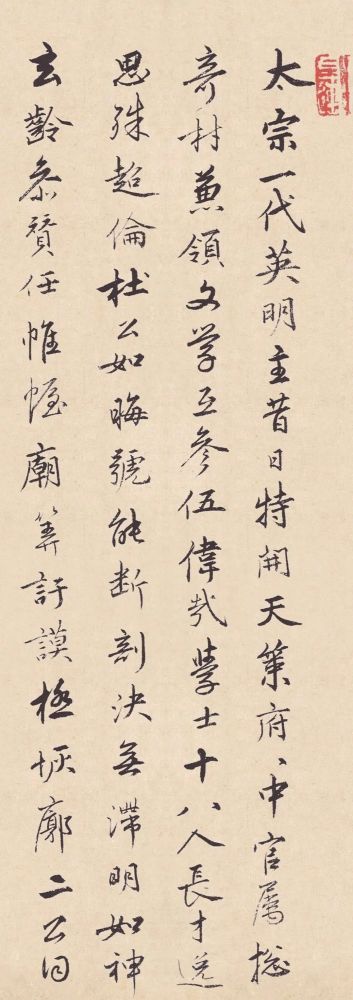 太宗一代英明主昔日特開天策府中官屬揔
奇材兼領文学互參伍偉哉學士十八人長才逸
思殊超倫杜公如晦號能斷剖決無滯明如神
玄齡參贊任帷幄廟筭訏謨極恢廓二公同